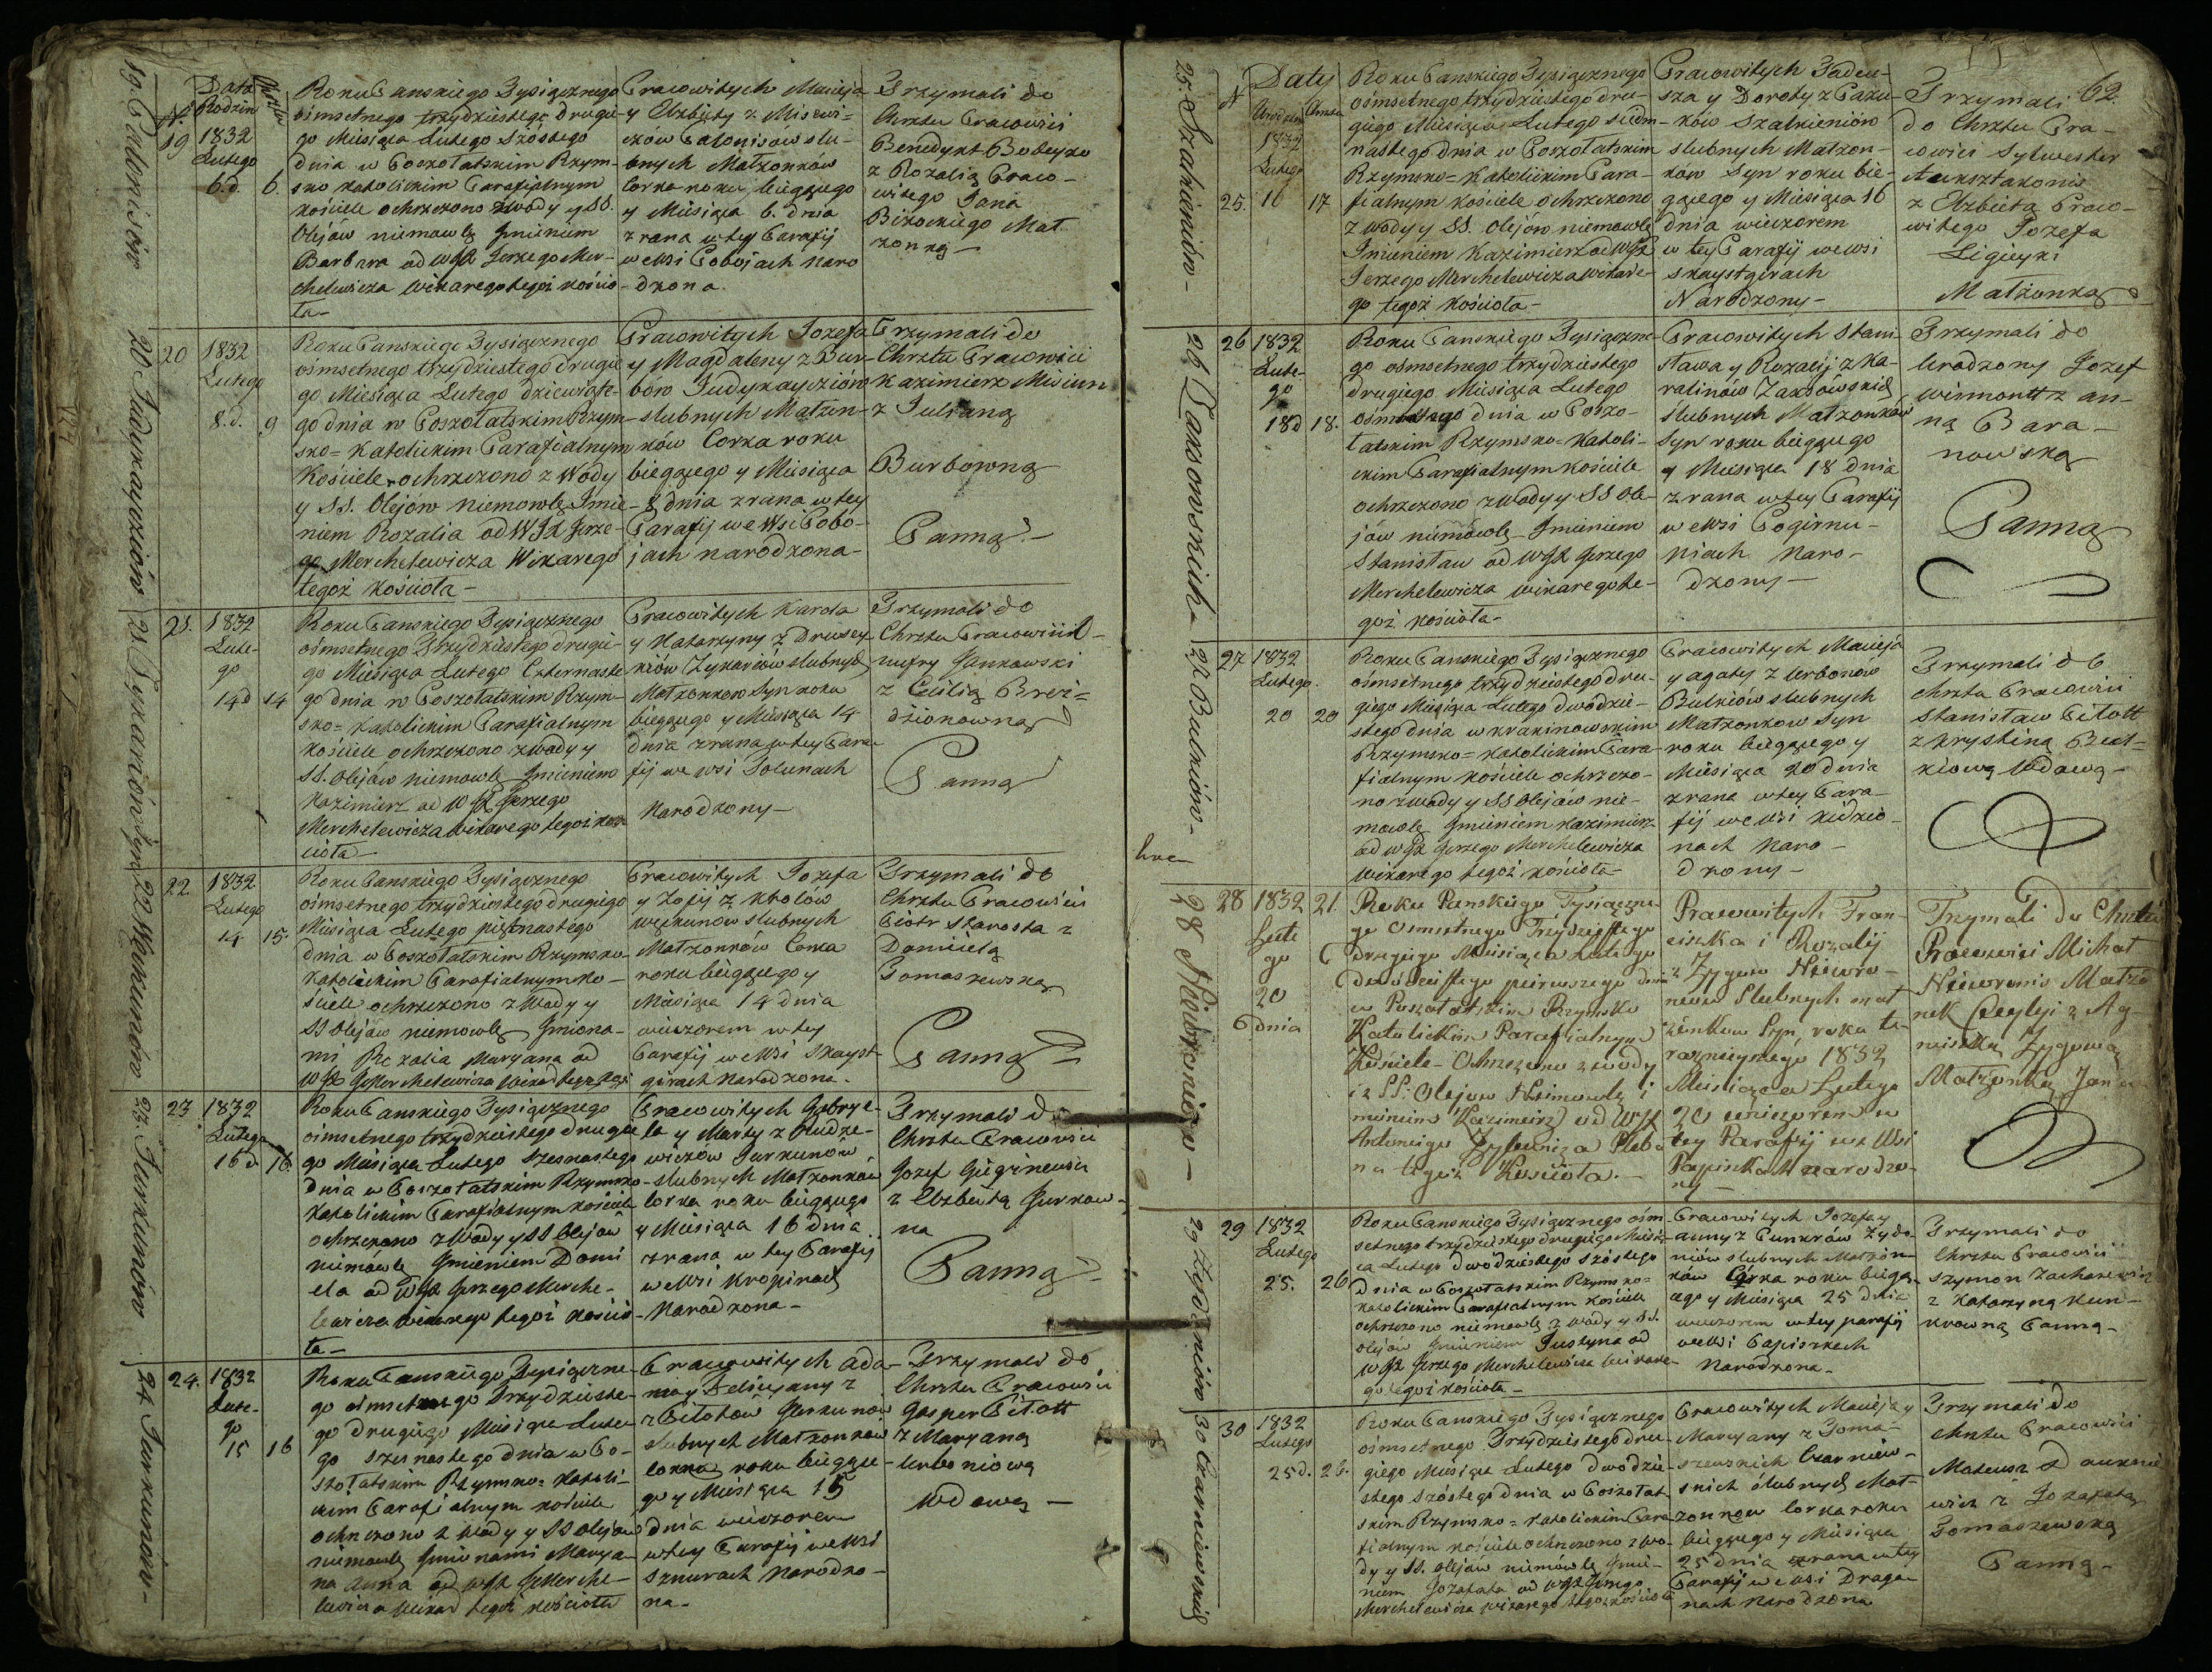 Data
Rodzin
Chrztu
N
19
1832
Lutego
6. d.
6.
19. Patonisów
Roku Panskiego Tysiącznego
osmsetnego trzydziestego drugie-
go Miesiąca Lutego szóstego
dnia w Poszołatskim Rzym-
sko katolickim Parafijalnym
kościele ochrzczono z Wody y SS.
Olejów niemowlę Jmieniem
Barbara od WJX Jerzego Mer-
chelewicza Wikarego tegoż kościo-
ła-
Pracowitych Macieja
y Elzbiety z Misewi-
czów Patonisów slu-
bnych Małżonków
Corka roku bieżącego
y Miesiąca 6. dnia
z rana w tey Parafij
we Wsi Pobojach naro
dzona.
Trzymali do
Chrztu Pracowici
Benedykt Bobeyko
z Rozalią Praco-
witego Jana
Małżonką-
20 Judykayciów
20
1832
Lutego
8. d.
9
Roku Panskiego Tysiącznego
osmsetnego trzydziestego drugie
go Miesiąca Lutego dziewiąte-
go dnia w Poszołatskim Rzym-
sko=katolickim Parafialnym
Kościele ochrzczono z Wody
y SS. Olejów niemowlę Jmie-
niem Rozalia od WJX Jerze-
go Merchelewicza Wikarego
tegoż kościoła-
Pracowitych Jozefa
y Magdaleny z Bur-
bów Judykayciów
slubnych Małżon-
ków Corka roku
bieżącego y Miesiąca
8 dnia z rana w tey
Parafij we Wsi Pobo-
jach narodzona-
Trzymali do
Chrztu Pracowici
Kazimierz Misiun
z Julianą
Burbowną
Panną-
21
1832
Lute-
go
14 d
14
Roku Panskiego Tysiącznego
osmsetnego Trzydziestego drugie-
go Miesiąca Lutego Czternaste
go dnia w Poszołatskim Rzym-
sko=katolickim Parafialnym
kościele ochrzczono z wody y
SS. Olejów niemowlę Jmieniem
Kazimierz od WJX Jerzego
Merchelewicza Wikarego tegoż koś-
cioła-
Pracowitych Karola
y Katarzyny z Drusey-
Małżonków Syn roku
bieżącego y Miesiąca 14
dnia z rana w tey Para-
fij we wsi Tolunach
Narodzony-
Trzymali do
Chrztu Pracowici O-
nufry Jankowski
z Cecilią
Panną
22
1832
Lutego
14
15.
Roku Panskiego Tysiącznego
osmsetnego trzydziestego drugiego
Miesiąca Lutego piętnastego
dnia w Poszołatskim Rzymsko
katolickim Parafialnym ko-
ściele ochrzczono z Wody y
SS Olejów niemowlę Jmiona-
mi Rozalia Maryana od
Pracowitych Jozefa
y Zofij z Krolów
Weykunów slubnych
Małżonków Corka
roku bieżącego y
Miesiąca 14 dnia
wieczorem w tey
Parafij we Wsi Skayst-
girach narodzona.
Trzymali do
Chrztu Pracowici
Piotr Starosta z
Danielą
Tomaszewską
Panną
23. Jurkunów
23
1832
Lutego
16 d.
16.
Roku Panskiego Tysiącznego
osmsetnego trzydziestego drugie
go Miesiąca Lutego szesnastego
dnia w Poszołatskim Rzymsko-
katolickim Parafialnym kościele
ochrzczono z Wody y SS Olejów
niemowlę Jmieniem Dani
ela od WJX Jerzego Merche-
lewicza Wikarego tegoż kościo-
ła-
Pracowitych Gabrye-
la y Marty z Rudze-
wiczów Jurkunów
slubnych Małżonków
Corka roku bieżącego
y Miesiąca 16 dnia
z rana w tey Parafij
we Wsi Kropinach
Narodzona-
Trzymali do
Chrztu Pracowici
Jozef
z Elzbietą Jurkow-
na
Panną
24. Jurkunów-
24.
1832
Lute-
go
15
16
Roku Panskiego Tysiączne-
go osmsetnego Trzydzieste-
go drugiego Miesiąca Lute
go szesnastego dnia w Po-
szołatskim Rzymsko=katoli-
kim Parafialnym kościele
ochrzczono z Wody y SS Olejów
niemowlę Jmionami Marya-
na Anna od WJX JMerche-
lewicza Wikar tegoż kościoła
Pracowitych Ada-
ma y Felicyany z
z Pitołów Jurkunów
slubnych Małżonków
Corka roku bieżące-
go y Miesiąca 15
dnia wieczorem
w tey Parafij we Wsi
Sznurach Narodzo-
na-
Trzymali do
Chrztu Pracowici
Gasper Pitott
z Maryaną
Urboniową
Wdową-
62.
25. Szalkieniów-
N
Daty
Urodzin
Chrztu
1832
Lutego
25.
16
17
Roku Panskiego Tysiącznego
osmsetnego trzydziestego dru-
giego Miesiąca Lutego siedm-
nastego dnia w Poszołatskim
Rzymsko=Katolickim Para-
fialnym kościele ochrzczono
z Wody y SS. Olejów niemowlę
Jmieniem Kazimierz od WJX
Jerzego Merchelewicza Wikare-
go tegoż kościoła-
Pracowitych Tadeu-
sza y Doroty z
ków Szalkieniów
slubnych Małżon-
ków Syn roku bie-
żącego y Miesiąca 16
dnia wieczorem
w tey Parafij we wsi
Skaystgirach
Narodzony-
Trzymali
do Chrztu Pra-
cowici Sylwester
z Elzbietą Praco-
witego Jozefa
Małżonką
26
1832
Lute-
go
18 d
18.
Roku Panskiego Tysiączne-
go osmsetnego trzydziestego
drugiego Miesiąca Lutego
osmnastego dnia w Poszo-
łatskim Rzymsko=Katoli-
ckim Parafialnym kościele
ochrzczono z Wody y SS Ole-
jów niemowlę Jmieniem
Stanisław od WJX Jerzego
Merchelewicza Wikarego te-
goż kościoła-
Pracowitych Stani-
sława y Rozalij z Ka-
ralinów
slubnych Małżonków
Syn roku bieżącego
y Miesiąca 18 dnia
z rana w tey Parafij
we Wsi Pogirnu-
niach Naro-
dzony-
Trzymali do
Urodzony Jozef
Wismontt z An-
ną Bara-
nowską
Panną
27 Butkiów-
27
1832
Lutego
20
20
Roku Panskiego Tysiącznego
osmsetnego trzydziestego dru-
giego Miesiąca Lutego dwódzie-
stego dnia w Krakinowskim
Rzymsko=katolickim Para-
fialnym kościele ochrzczo-
no z Wody y SS Olejów nie-
mowlę Jmieniem Kazimierz
od WJX Jerzego Merchelewicza
Wikarego tegoż kościoła-
Pracowitych Macieja
y Agaty z Urbonów
Butkiów slubnych
Małżonków Syn
roku bieżącego y
Miesiąca 20 dnia
z rana w tey Para-
fij we Wsi
nach Naro-
dzony-
Trzymali do
Chrztu Pracowici
Stanisław Pitott
z Krystiną But-
kiową Wdową-
28 Niewroniów-
28
1832
Lute
go
20
dnia
21.
Roku Panskiego Tysiączne-
go Osmsetnego Trzydziestego
drugiego Miesiąca Lutego
dwódziestego pierwszego dnia
w Poszołatskim Rzymsko
Katolickim Parafialnym
Kościele Ochrzczono z wody
i z SS: Olejow Niemowle i
mieniem Kazimierz od WJX
Antoniego Plebа
na tegoż Kościoła.-
Pracowitych Fran-
ciszka i Rozalij
z Zygow Niewro-
niow Slubnych mał
żonkow Syn, roku te-
raznieyszego 1832
Miesiąca Lutego
20 wieczorem w
tey Parafij we Wsi
Papiszkach narodzo-
ny-
Trzymali do Chrztu
Pracowici Michał
Niewronis Małżo
nek Cecylij z Ag-
nieszką Zygową
Małżonką Jana
29 Zydaniów
29
1832
Lutego
25.
26
Roku Panskiego Tysiącznego osm
setnego trzydziestego drugiego Miesią-
ca Lutego dwódziestego szóstego
dnia w Poszołatskim Rzymsko=
katolickim Parafialnym kościele
ochrzczono niemowlę z Wody y SS.
Olejów Jmieniem Justyna od
WJX Jerzego Merchelewicza Wikare-
go tegoż kościoła-
Pracowitych Jozefa y
Anny z Kunkrów Zyda-
niów slubnych Małżon-
ków Córka roku bieżą-
cego y Miesiąca 25 dnia
wieczorem w tey parafij
we Wsi Papiszkach
Narodzona-
Trzymali do
Chrztu Pracowici
Szymon Zacharewicz
z Katarzyną Kun-
krowną Panną-
30 Czarniewskich
30
1832
Lutego
25 d.
26.
Roku Panskiego Tysiącznego
osmsetnego Trzydziestego dru-
giego Miesiąca Lutego dwódzie-
stego szóstego dnia w Poszołat-
skim Rzymsko=katolickim Para
fialnym kościele ochrzczono z Wo-
dy y SS. Olejów niemówlę Jmie-
niem Jozafata od WJX Jerzego
Merchelewicza Wikarego tegoż kościoła
Pracowitych Macieja y
Maryany z Toma-
szewskich Czarniew-
skich ślubnych Mał-
żonków Corka roku
bieżącego y Miesiąca
25 dnia z rana w tey
Parafij we Wsi Draga-
nach Narodzona
Trzymali do
Chrztu Pracowici
Mateusz Adamkie
wicz z Jozafatą
Tomaszewską
Panną-